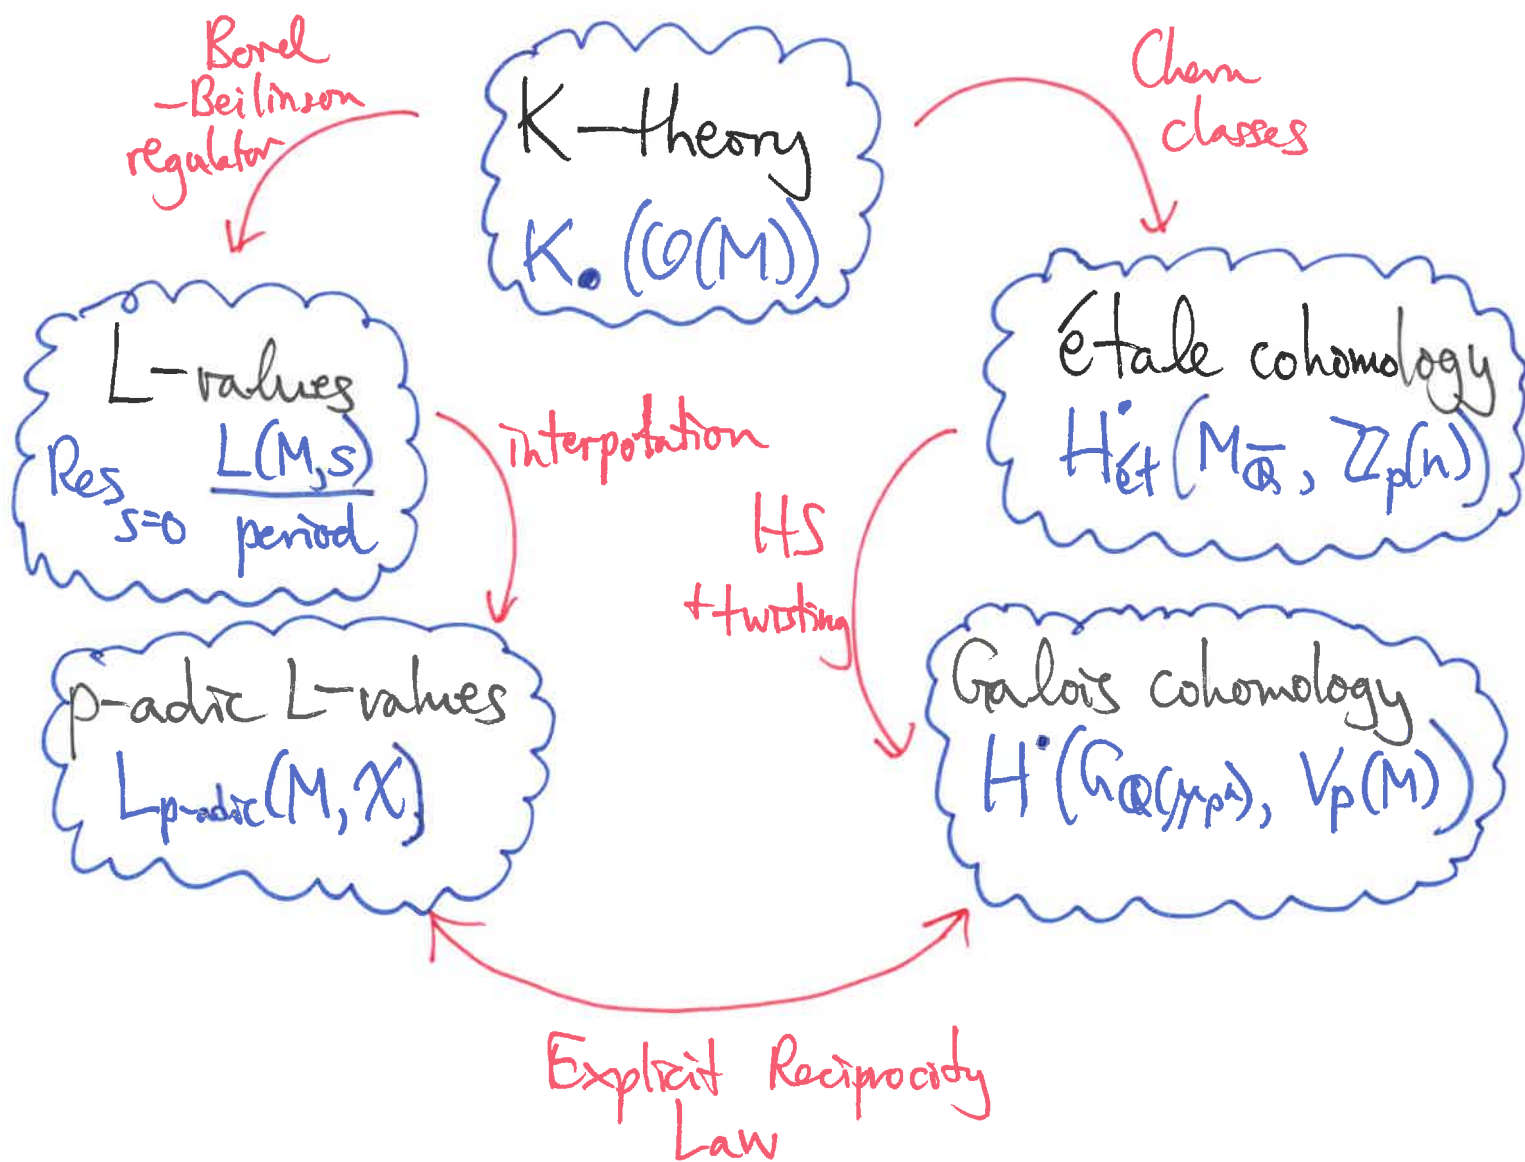 Borel
-Beilinson
regulator
K-theory
K.(O(M))
Chern
classes
L-values
Res s=0 L(M,s)/period
interpolation
étale cohomology
H^•_ét(M_Q̄, Z_p(n))
HS
+twisting
p-adic L-values
L_p-adic(M, χ)
Galois cohomology
H^•(G_Q(μ_p^n), V_p(M))
Explicit Reciprocity
Law